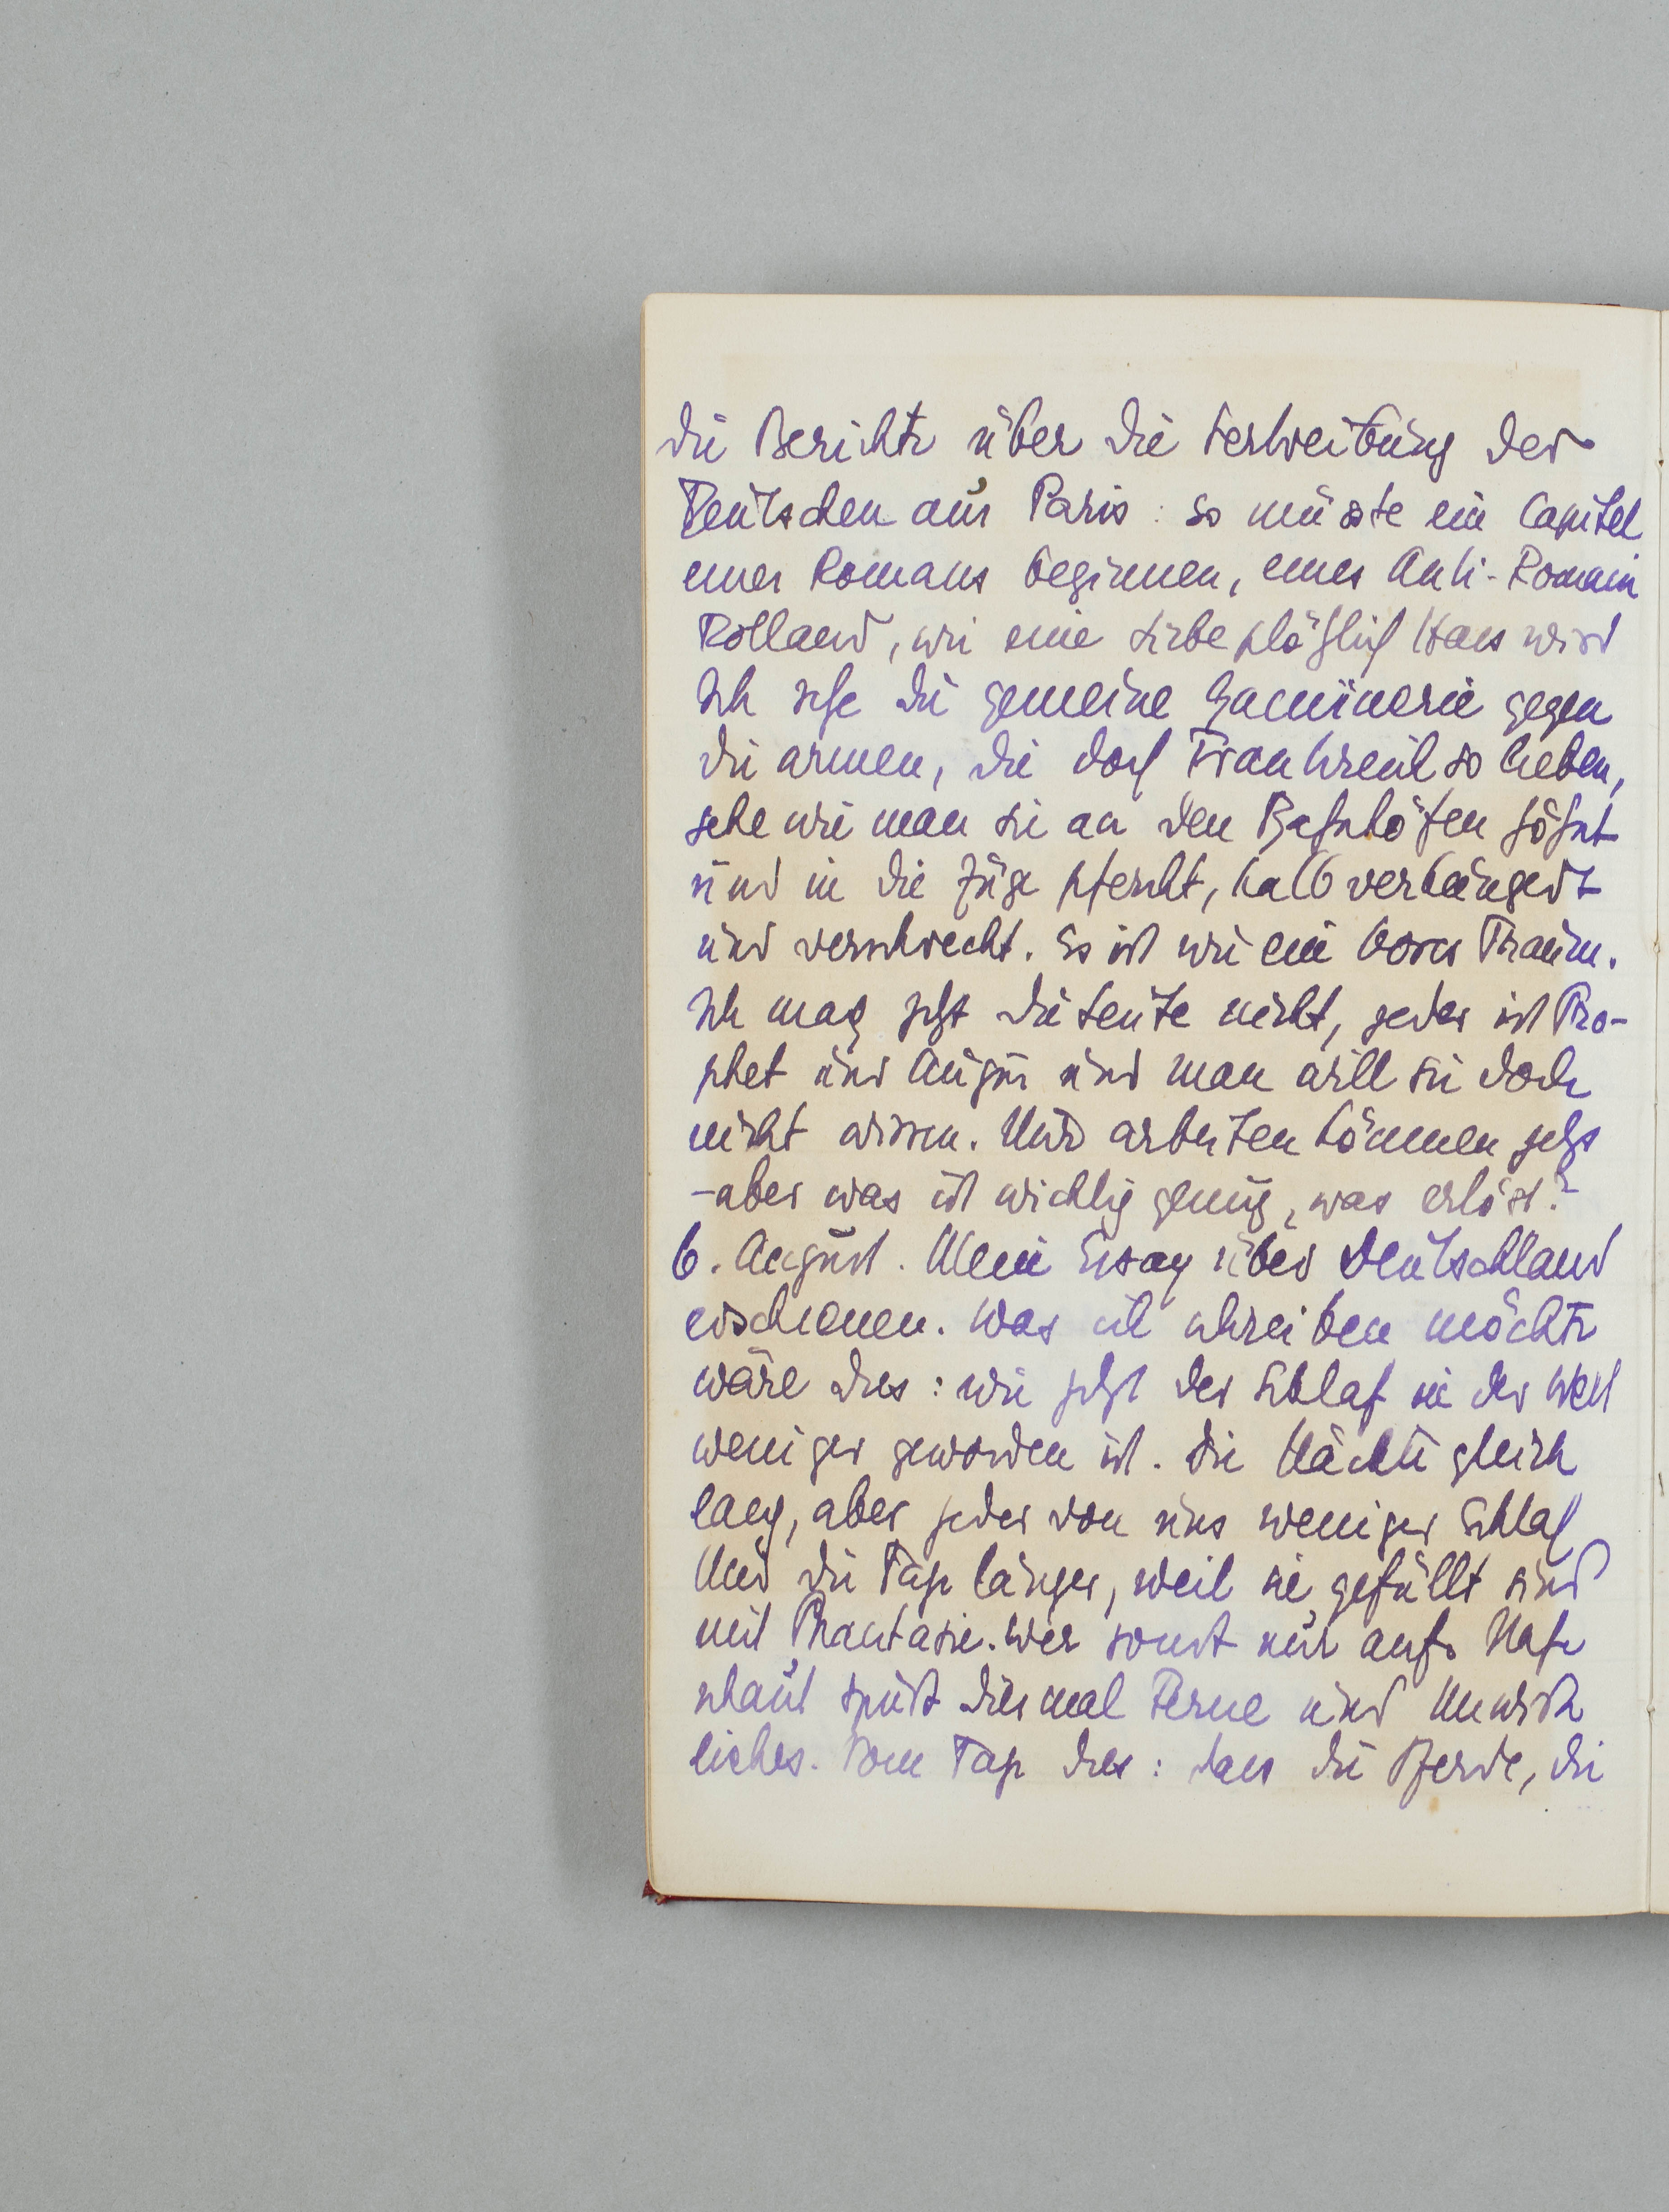 die Berichte über die Vertreibung der
Deutschen aus Paris: so müsste ein Capitel
eines Romans beginnen, eines Anti-Romain
Rolland, wie eine Liebe plötzlich Hass wird
Ich sehe die gemeine Gaminerie gegen
die armen, die doch Frankreich so lieben,
sehe wie man sie an den Bahnhöfen höhnt
und in die Züge pfercht, halb verhungert
und verschreckt. Es ist wie ein böser Traum.
Ich mag jetzt die Leute nicht, jeder ist Pro-
phet und Augur und man will sie doch
nicht wissen. Und arbeiten können jetzt
- aber was ist wichtig genug, was erlöst?
6. August. Mein Essay über Deutschland
erschienen. Was ich schreiben möchte
wäre dies: wie jetzt der Schlaf in der Welt
weniger geworden ist. Die Nächte gleich
lang, aber jeder von uns weniger Schlaf
Und die Tage länger, weil sie gefüllt sind
mit Phantasie. Wer sonst nur aufs Nahe
schaut spürt diesmal Ferne und Unwirk
liches. Vom Tage dies: dass die Pferde, die